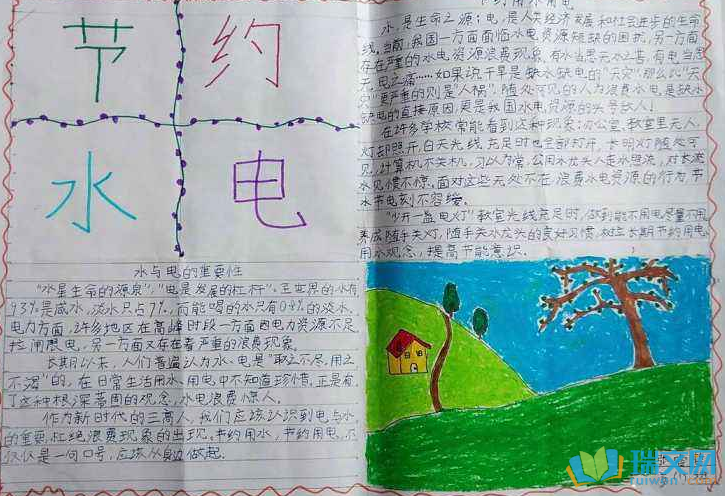 节 约
水 电
水与电的重要性
"水是生命的源泉","电是发展的杠杆"。全世界的水有
93%是咸水,淡水只占7%,而能喝的水只有0.8%的淡水。
电力方面,许多地区在高峰时段一方面因电力资源不足
拉闸限电,另一方面又存在着严重的浪费现象。
长期以来,人们普遍认为水、电是"取之不尽,用之
不竭"的,在日常生活用水、用电中不知道珍惜,正是有
了这种根深蒂固的观念,水电浪费惊人。
作为新时代的主人,我们应该认识到电与水
的重要,杜绝浪费现象的出现。节约用水,节约用电,不
仅仅是一句口号,应该从身边做起。
节约用水用电
水,是生命之源;电,是人类经济发展和社会进步的生命
线。当前,我国一方面面临水电资源短缺的困扰,另一方面
存在严重的水电资源浪费现象。有水当思无水之苦,有电当思
无电之痛……如果说干旱是缺水缺电的"天灾",那么比"天
灾"更严重的则是"人祸"。随处可见的人为浪费水电,是缺水
缺电的直接原因,更是我国水电资源的头号敌人!
在许多学校常能看到这种现象:办公室、教室里无人,
灯却照开,白天光线充足时也全部打开,长明灯随处可
见,计算机不关机,习以为常,公用水龙头人走水照流,对长流
水见惯不惊。面对这些无处不在浪费水电资源的行为,节
水节电刻不容缓。
"少开一盏电灯"教室光线充足时,做到能不用电尽量不用,
养成随手关灯,随手关水龙头的良好习惯,树立长期节约用电、
用水观念,提高节能意识。
瑞文网
ruiwen.com